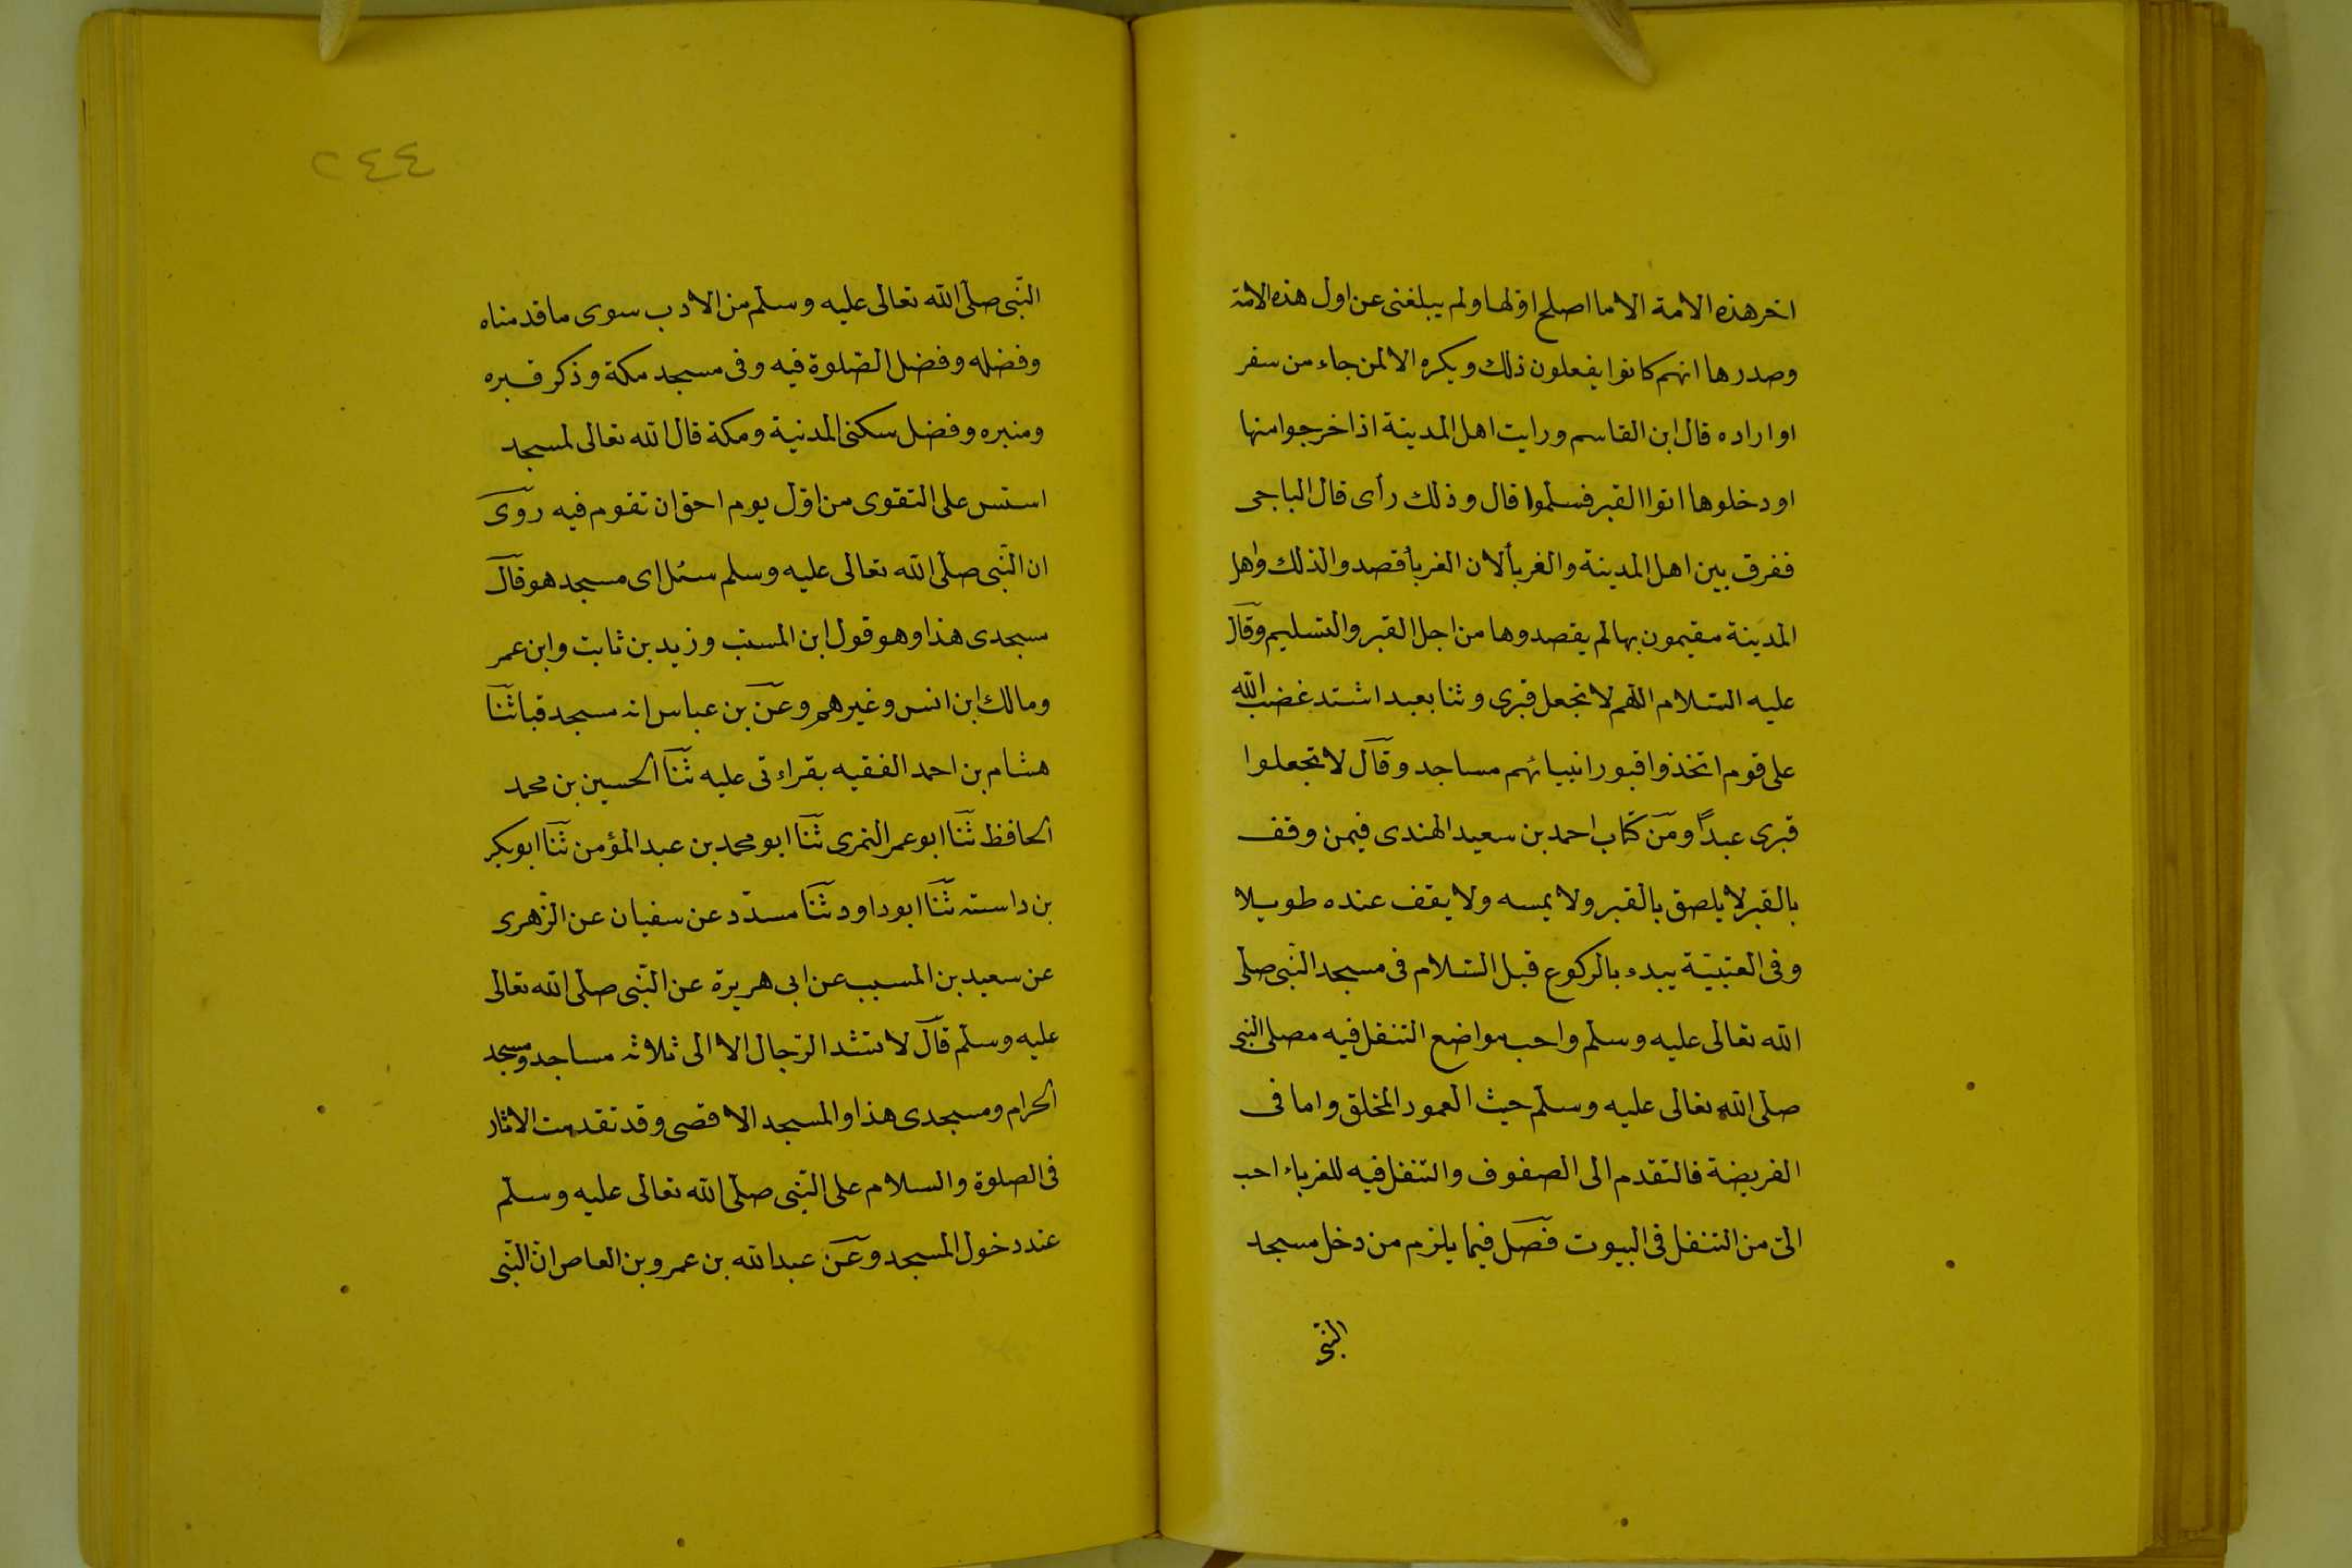 اخر هذه الامة الا ما اصلح اولها ولم يبلغنى عن اول هذه الامة
وصدرها انهم كانوا يفعلون ذلك ويكره الا لمن جاء من سفر
او اراده قال ابن القاسم ورايت اهل المدينة اذا خرجوا منها
او دخلوها اتوا القبر فسلموا قال وذلك رأى قال الباجى
ففرق بين اهل المدينة والغربأ لان الغربأ قصدوا لذلك واهل
المدينة مقيمون بها لم يقصدوها من اجل القبر والتسليم وقال
عليه السّلام اللّهم لا تجعل قبرى وثنا يعبد اشتد غضب الله
على قوم اتخذوا قبور انبيائهم مساجد وقال لا تجعلوا
قبرى عبدًا ومن كتاب احمد بن سعيد الهندى فيمن وقف
بالقبر لا يلصق بالقبر ولا يمسه ولا يقف عنده طويلا
وفى العتبيّة يبدء بالركوع قبل السّلام فى مسجد النّبى صلّى
الله تعالى عليه وسلّم واحب مواضع التنفل فيه مصلى النبى
صلى الله تعالى عليه وسلّم حيث العمود المخلق واما فى
الفريضة فالتقدم الى الصفوف والتنفل فيه للغرباء احب
الىّ من التنفل فى البيوت فصل فيما يلزم من دخل مسجد
النّبى
٢٤٤
النّبى صلّى الله تعالى عليه وسلّم من الادب سوى ما قدمناه
وفضله وفضل الصّلوة فيه وفى مسجد مكة وذكر قبره
ومنبره وفضل سكنى المدنية ومكة قال الله تعالى لمسجد
اسّس على التقوى من اوّل يوم احق ان تقوم فيه روى
ان النّبى صلّى الله تعالى عليه وسلم سئل اى مسجد هو قال
مسجدى هذا وهو قول ابن المسيّب وزيد بن ثابت وابن عمر
ومالك ابن انس وغيرهم وعن بن عباس انه مسجد قبا ثنا
هشام بن احمد الفقيه بقراءتى عليه ثنا الحسين بن محمد
الحافظ ثنا ابو عمر النمرى ثنا ابو محمد بن عبد المؤمن ثنا ابو بكر
بن داسته ثنا ابو داود ثنا مسدّد عن سفيان عن الزّهرى
عن سعيد بن المسيب عن ابى هريرة عن النّبى صلى الله تعالى
عليه وسلّم قال لا تشد الرّجال الا الى ثلاثه مساجد ومسجد
الحرام ومسجدى هذا والمسجد الاقصى وقد تقدمت الاثار
فى الصلوة والسلام على النّبى صلّى الله تعالى عليه وسلّم
عند دخول المسجد وعن عبد الله بن عمرو بن العاص انّ النّبى